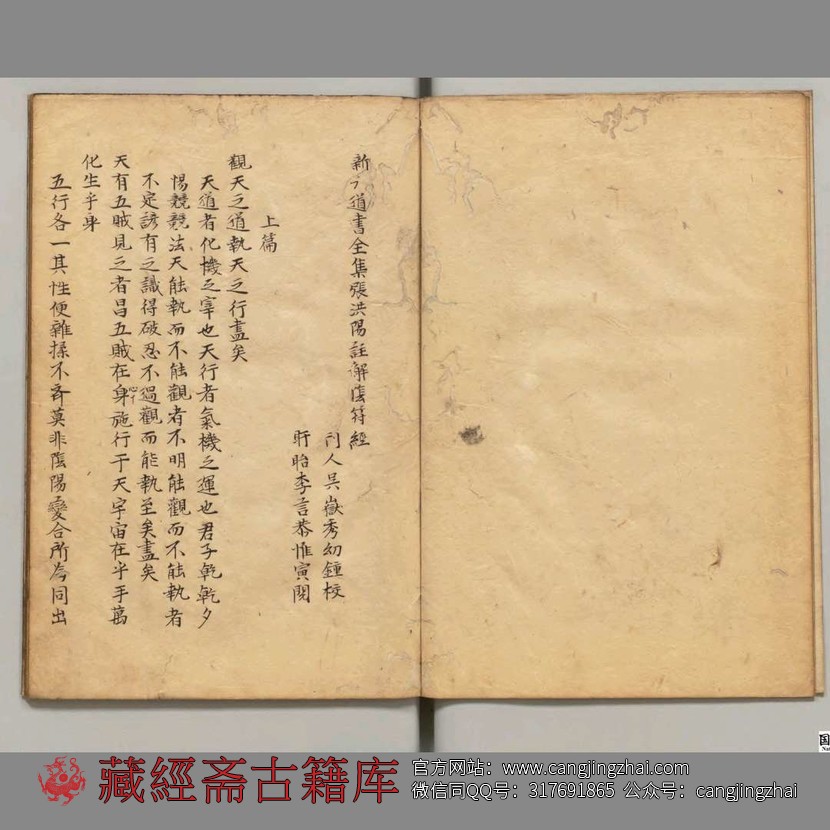 新刁道書全集張洪陽註解陰符經
刁人吳嶽秀幼鍾校
盱眙李言恭惟寅閱
上篇
觀天之道執天之行盡矣
天道者化機之宰也天行者氣機之運也君子乾乾夕
惕兢兢法天能執而不能觀者不明能觀而不能執者
不定諺有之識得破忍不過觀而能執至矣盡矣
天有五賊見之者昌五賊在身心施行于天宇宙在乎手萬
化生乎身
五行各一其性便雜揉不齊莫非陰陽變合所為同出
國
Nat
藏經斋古籍库
官方网站：www.cangjingzhai.com
微信同QQ号：317691865 公众号：cangjingzhai